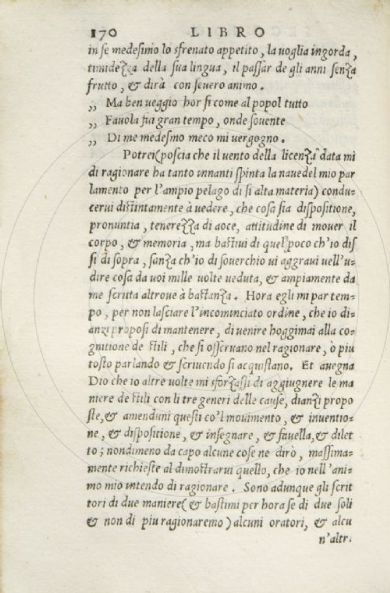 170 LIBRO
in se medesimo lo sfrenato appetito, la uoglia ingorda,
timideʒʒa della sua lingua, il passar de gli anni senʒa
frutto, & dirà con seuero animo.
„ Ma ben ueggio hor si come al popol tutto
„ Fauola fui gran tempo, onde souente
„ Di me medesmo meco mi uergogno.
Potrei (poscia che il uento della licenʒa data mi
di ragionare ha tanto innanti spinta la naue del mio par
lamento per l'ampio pelago di si alta materia) condu-
cerui distintamente à uedere, che cosa sia dispositione,
pronuntia, tenereʒʒa di uoce, attitudine di mouer il
corpo, & memoria, ma bastiui di quel poco ch'io dis
si di sopra, sanʒa ch'io di souerchio ui aggraui nell'u-
dire cosa da uoi mille uolte ueduta, & ampiamente da
me scritta altroue à bastanʒa. Hora egli mi par tem-
po, per non lasciare l'incominciato ordine, che io di-
anʒi proposi di mantenere, di uenire hoggimai alla co-
gnitione de stili, che si osseruano nel ragionare, ò piu
tosto parlando & scriuendo si acquistano. Et auegna
Dio che io altre uolte mi sforʒassi di aggiugnere le ma
niere de stili con li tre generi delle cause, dianʒi propo
ste, & amenduni questi co'l mouimento, & inuentio-
ne, & dispositione, & insegnare, & fauella, & dilet
to; nondimeno da capo alcune cose ne dirò, massima-
mente richieste al dimostrarui quello, che io nell'ani-
mo mio intendo di ragionare. Sono adunque gli scrit
tori di due maniere (& bastimi per hora se di due soli
& non di piu ragionaremo) alcuni oratori, & alcu
n'altri